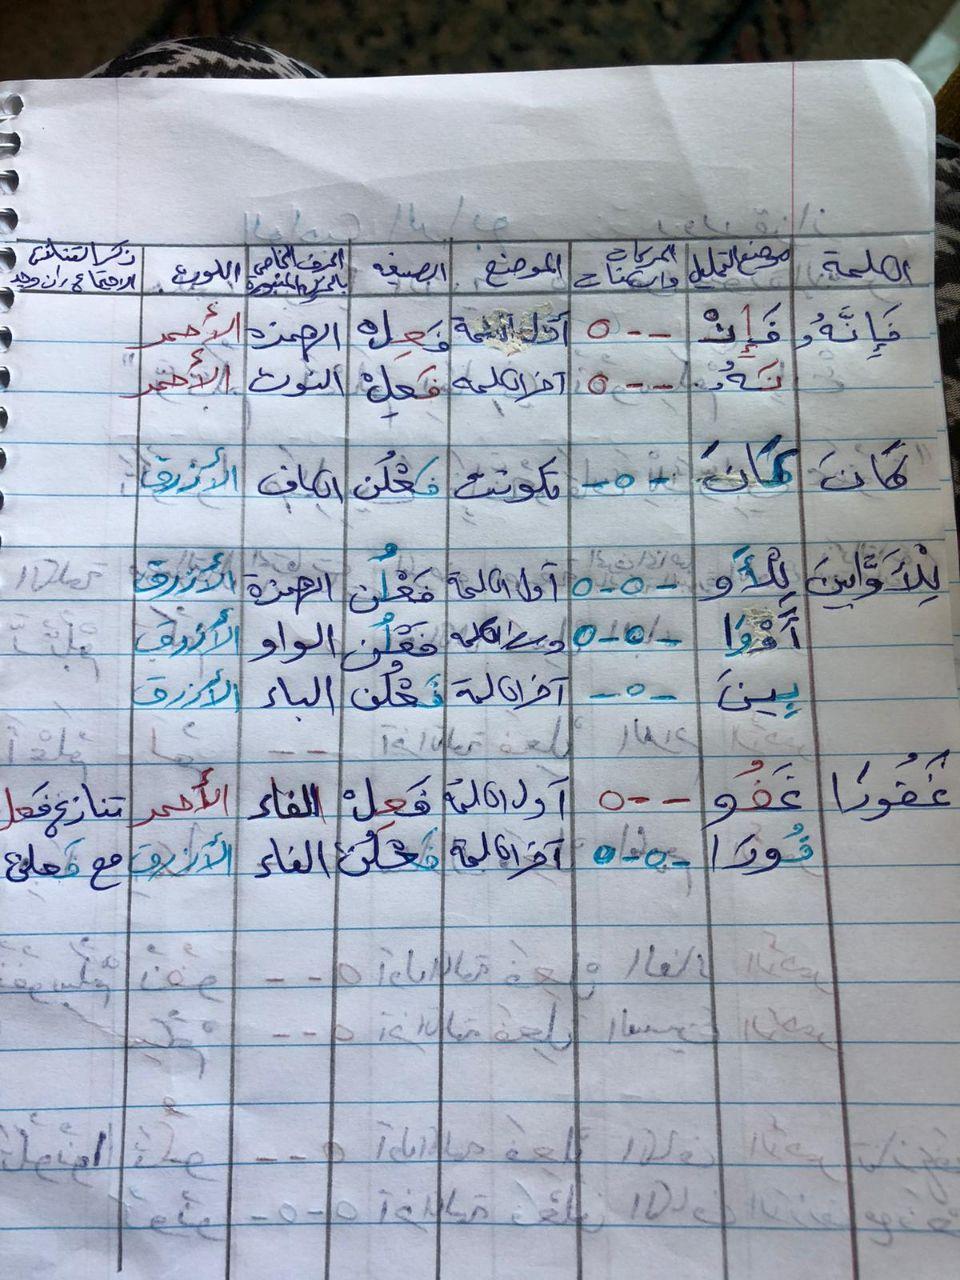 الكلمة موضع التحليل الحركات والسكنات الموضع الصيغه الحرف الخاص بالحركة اللون
فَإِنَّهُو فَإِنْ --o أول الكلمة فَعِلْ الهمزة الأحمر
نَهُو --o آخر الكلمة فَعِلْ النون الأحمر
كَانَ كَانَ -o- فَعْلُن الكاف الأزرق
لِلْأَوَّابِينَ لِلْأَو -o-o أول الكلمة فَعْلُن الهمزة الأزرق
أَوْوَا -o-o وسط الكلمة فَعْلُن الواو الأزرق
بِينَ -o- آخر الكلمة فَعْلُن الباء الأزرق
غَفُورَا غَفُو --o أول الكلمة فَعِلْ الفاء الأحمر تنازع فَعِل
فُورَا -o-o آخر الكلمة فَعْلُن الفاء الأزرق مع فَعلن